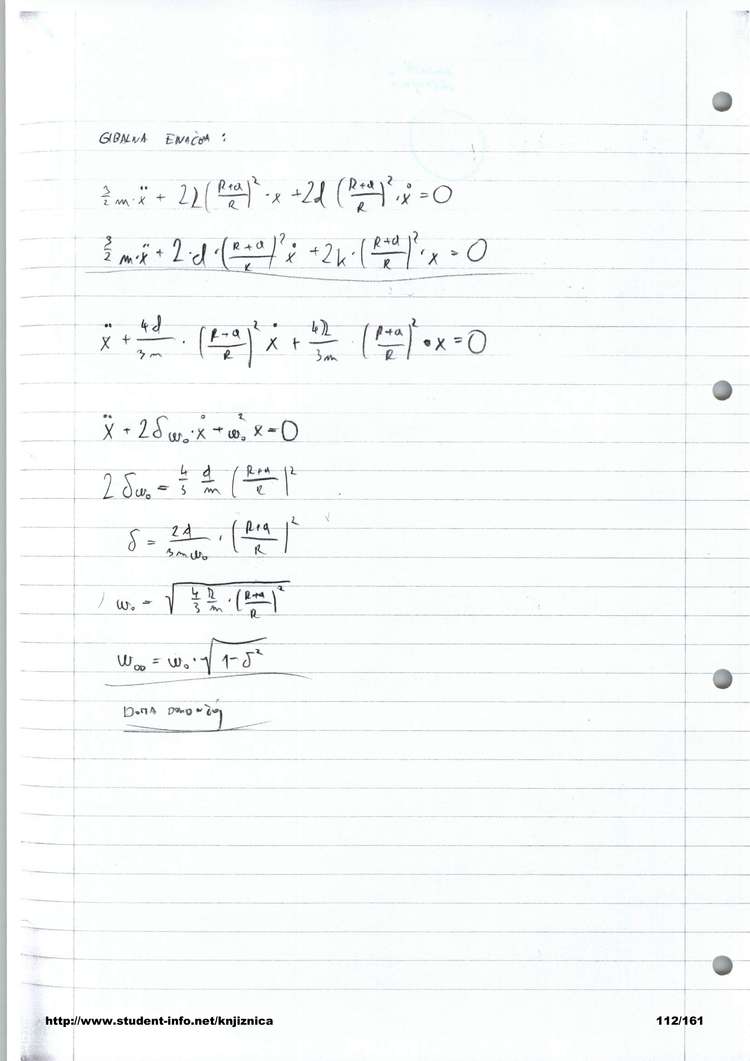 GIBALNA ENAČBA :
3/2 m·ẍ + 2k((R+a)/R)²·x + 2d((R+a)/R)²·ẋ = 0
3/2 m·ẍ + 2·d·((R+a)/R)² ẋ + 2k·((R+a)/R)²·x = 0
ẍ + 4d/3m · ((R+a)/R)² ẋ + 4k/3m · ((R+a)/R)² · x = 0
ẍ + 2δω₀·ẋ + ω₀² x = 0
2δω₀ = 4/3 d/m ((R+a)/R)²
δ = 2d/3mω₀ · ((R+a)/R)²
ω₀ = √(4/3 k/m · ((R+a)/R)²)
ω₀D = ω₀·√(1-δ²)
http://www.student-info.net/knjiznica 112/161